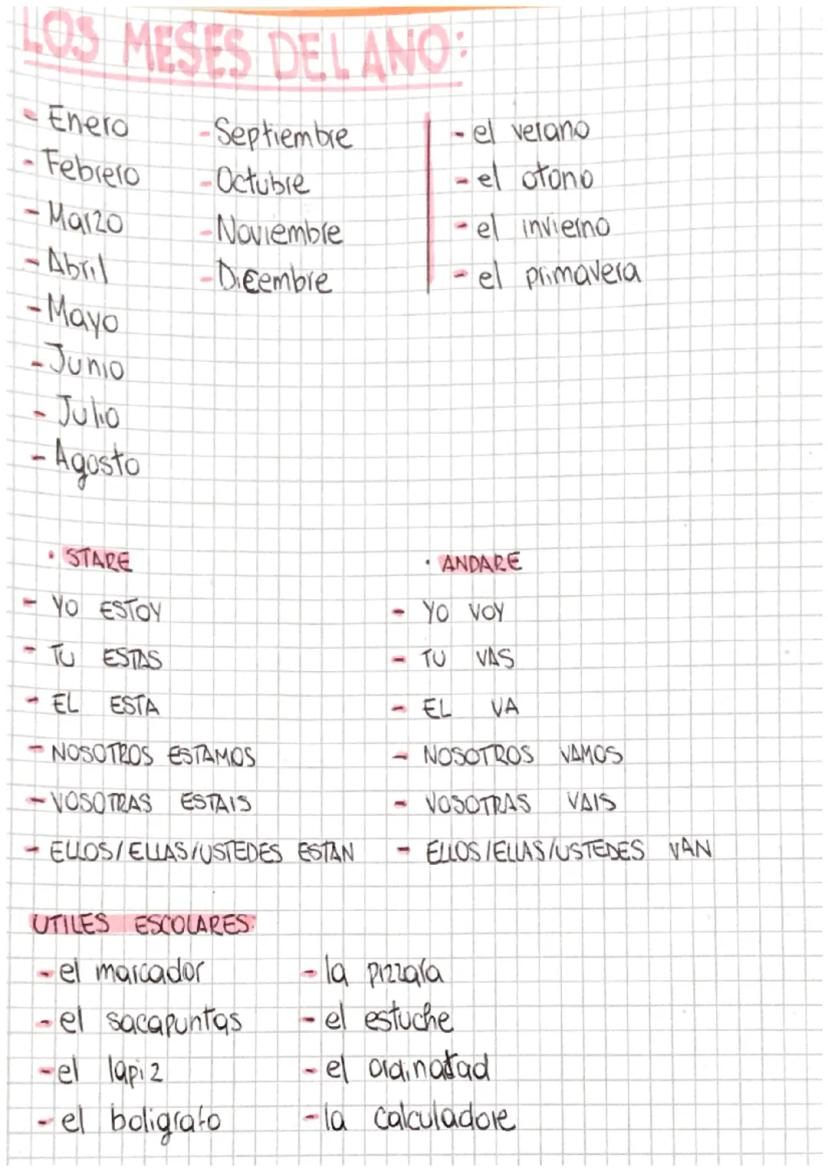 LOS MESES DEL ANO:
- Enero
- Febrero
- Marzo
- Abril
- Mayo
- Junio
- Julio
- Agosto
- Septiembre
- Octubre
- Noviembre
- Dicembre
- el verano
- el otono
- el invierno
- el primavera
• STARE
- YO ESTOY
- TU ESTAS
- EL ESTA
- NOSOTROS ESTAMOS
- VOSOTRAS ESTAIS
- ELLOS/ELLAS/USTEDES ESTAN
• ANDARE
- YO VOY
- TU VAS
- EL VA
- NOSOTROS VAMOS
- VOSOTRAS VAIS
- ELLOS/ELLAS/USTEDES VAN
UTILES ESCOLARES:
- el marcador
- el sacapuntas
- el lapiz
- el boligrafo
- la pizzara
- el estuche
- el ordinatad
- la calculadore